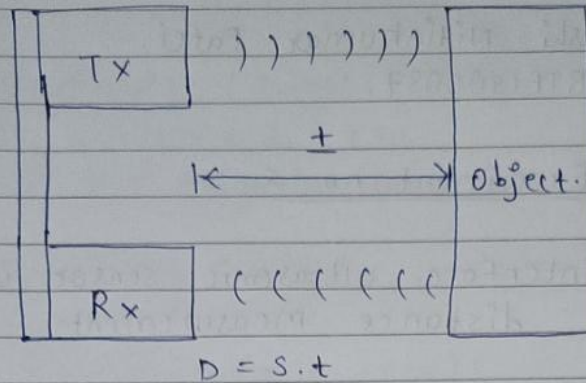 Tx
t
Object.
Rx
D = S.t